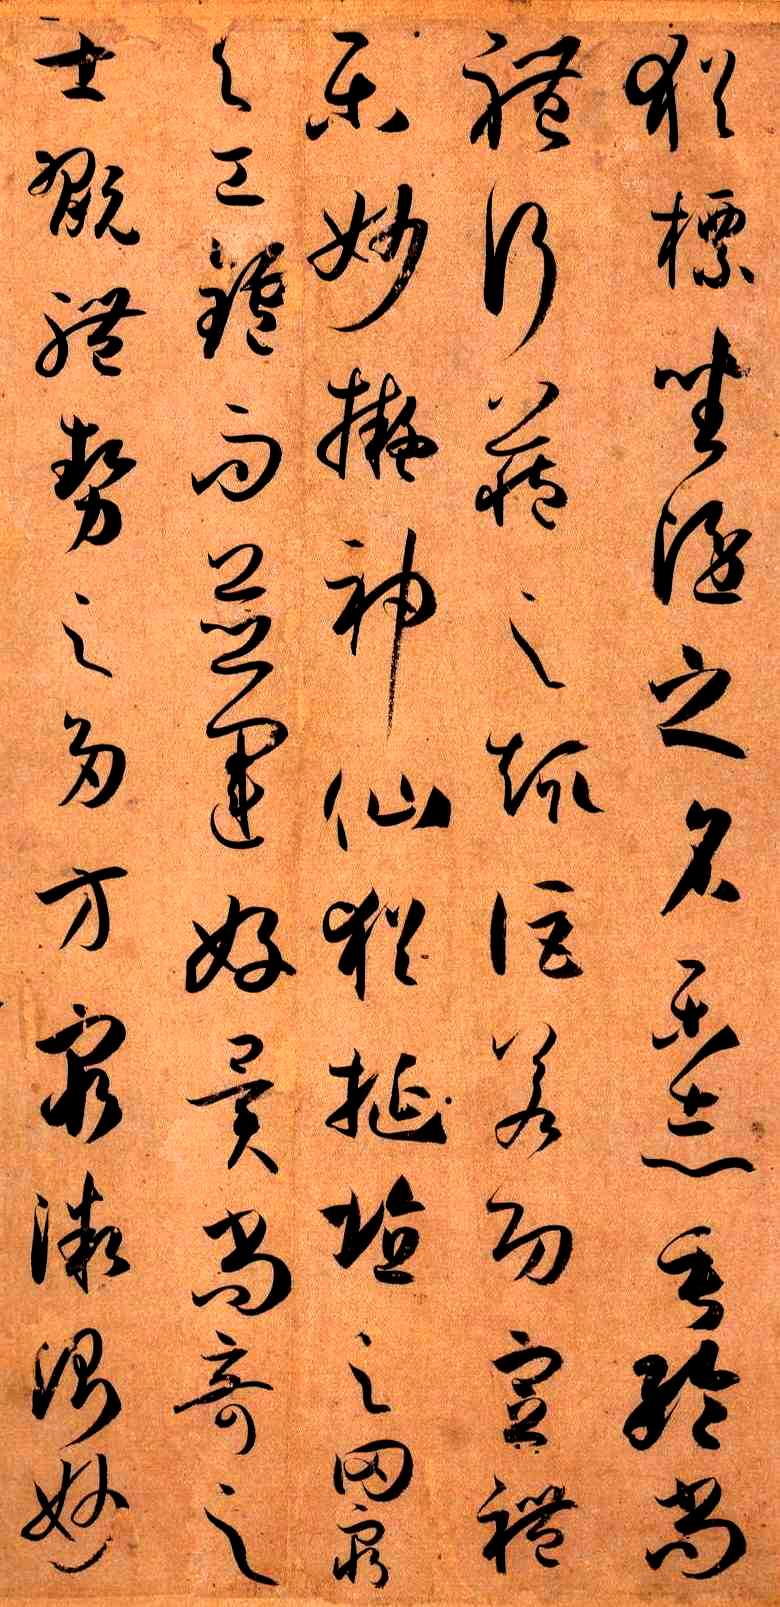 猶標坐隱之名樂志垂綸尚
體行藏之趣詎若功宣禮
樂妙擬神仙猶埏埴之罔窮
與工鑪而並運好異尚奇之
士翫體勢之多方窮微測妙